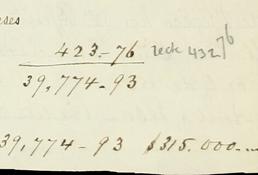 ses
423.-76 zeck 432 76
39,774-93
39,774-93 $315.000-